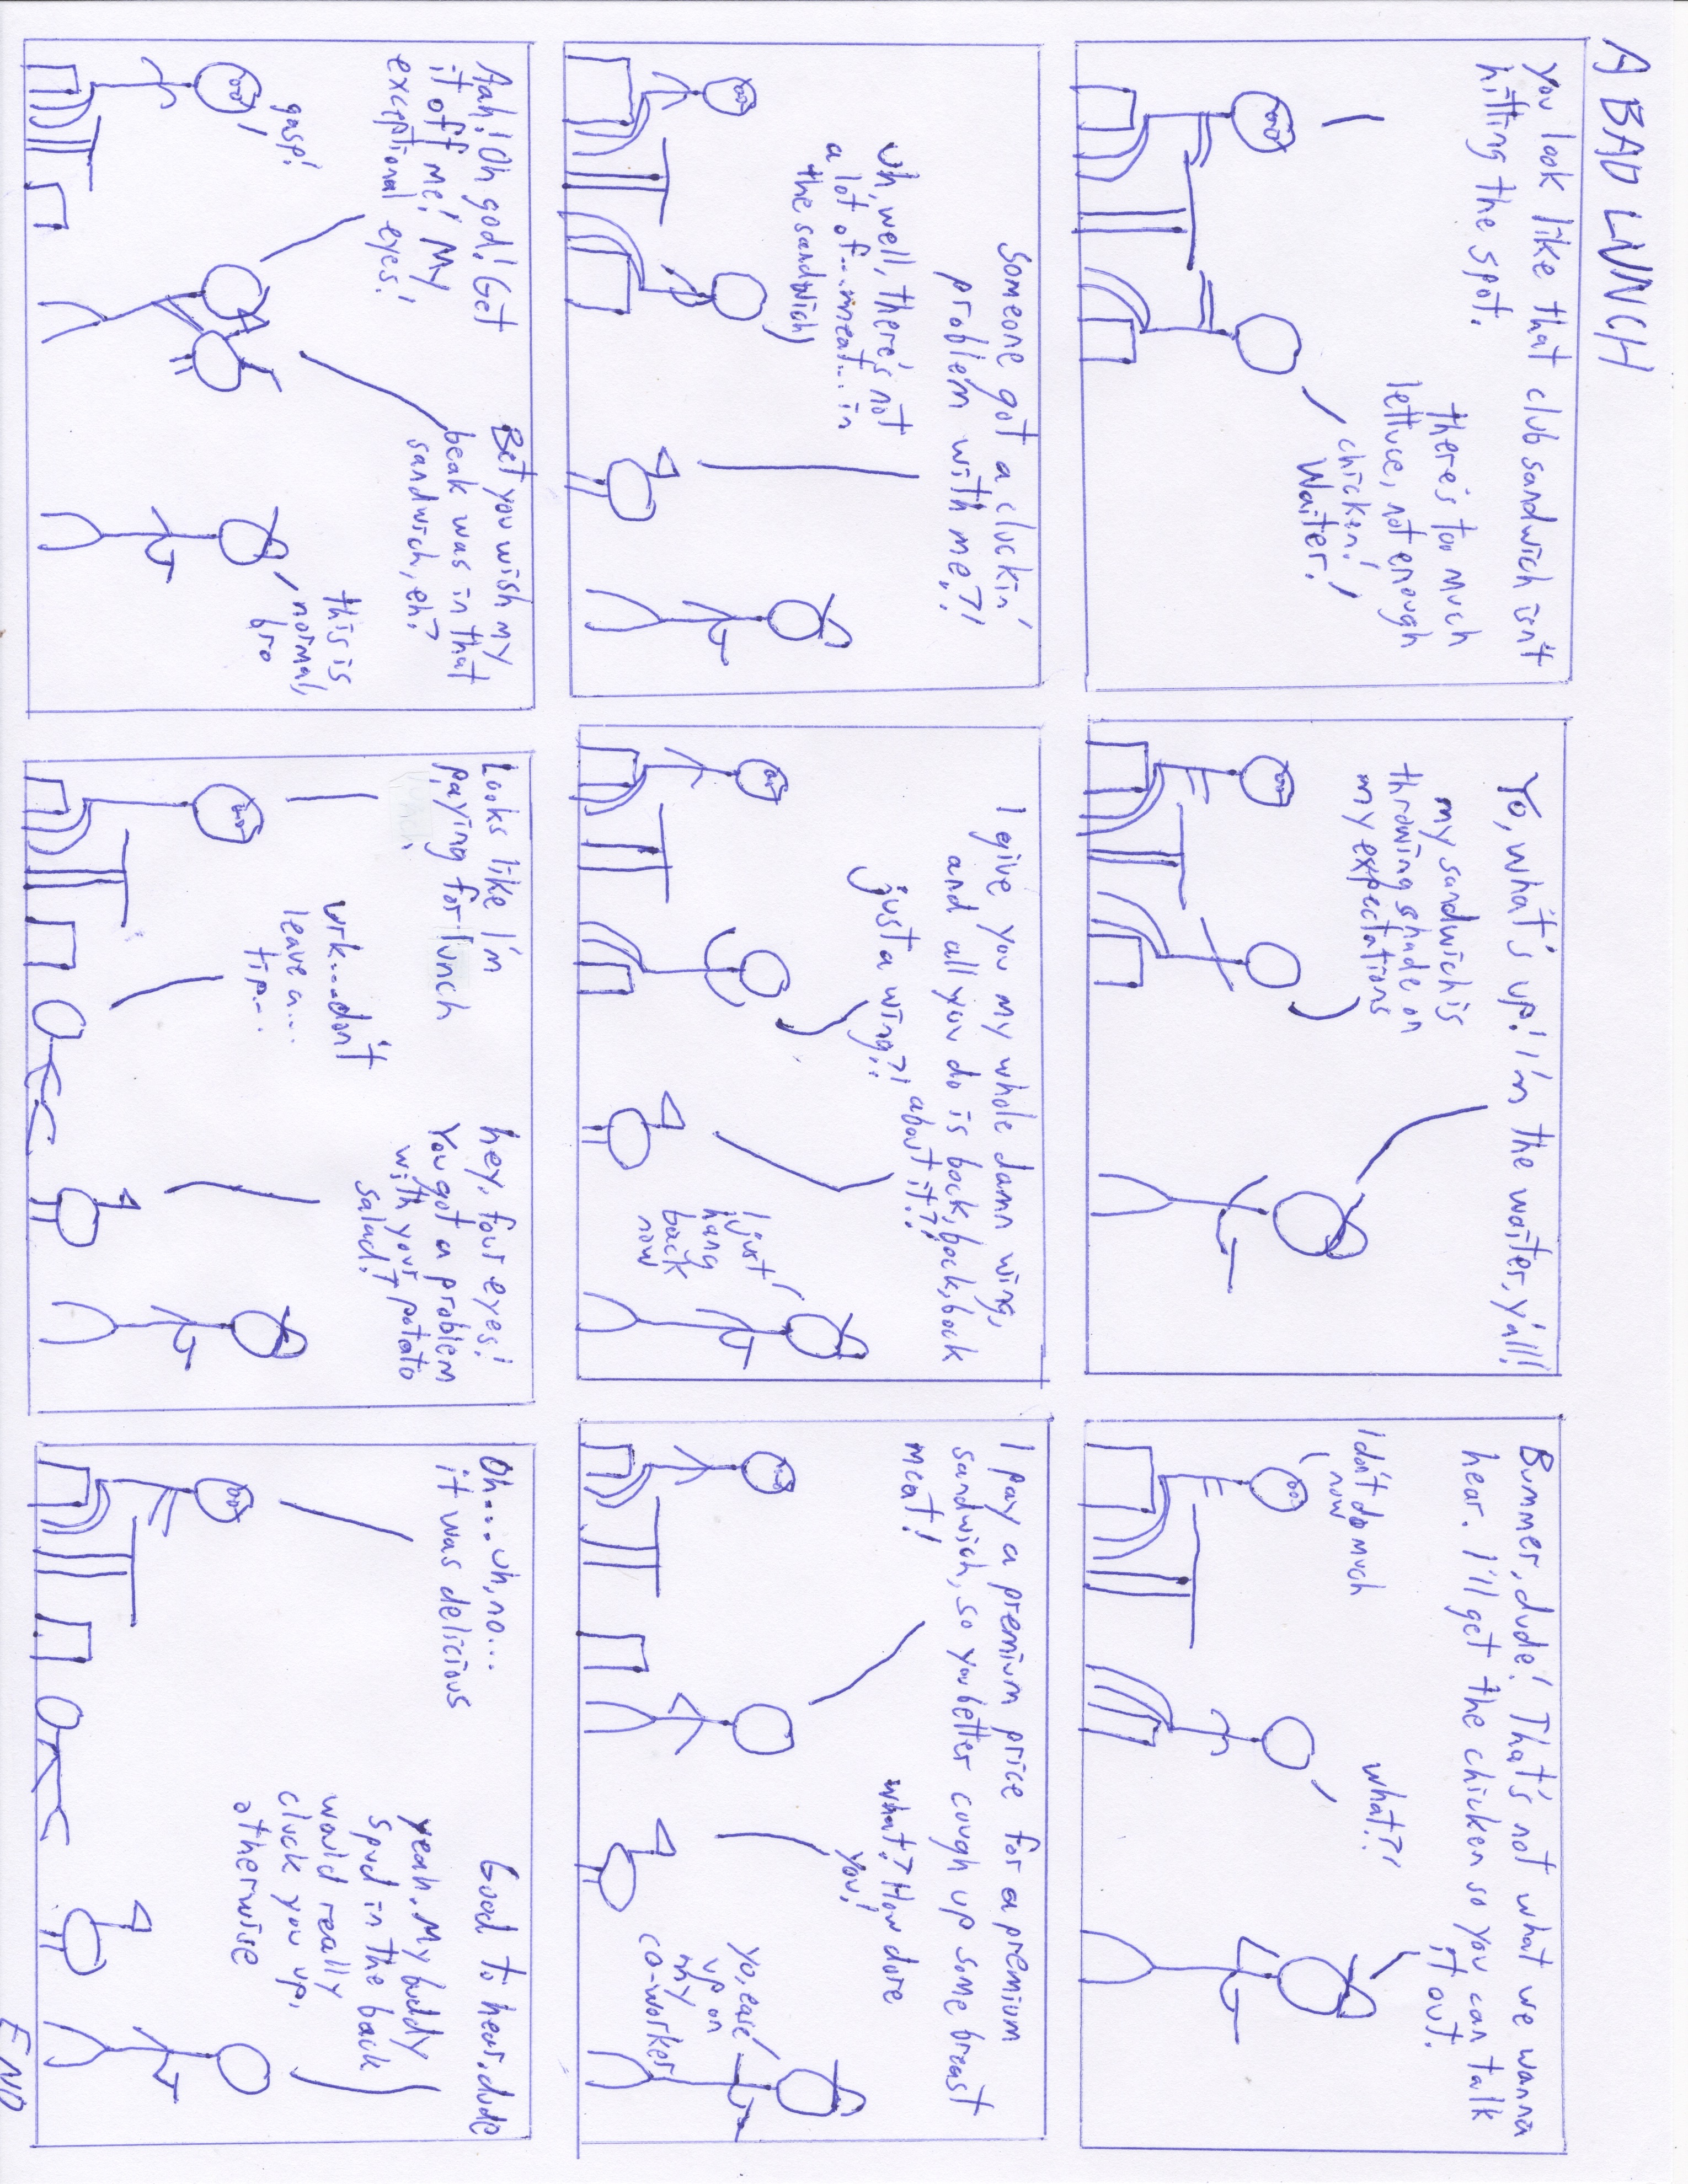 A BAD LUNCH
You look like that club sandwich isn't
hitting the spot.
there's too much
lettuce, not enough
chicken!
Waiter!
Yo, what's up! I'm the waiter, y'all!
my sandwich is
throwing shade on
my expectations
Bummer, dude! That's not what we wanna
hear. I'll get the chicken so you can talk
it out.
I don't do much
now
what?!
Someone got a cluckin'
problem with me?!
uh, well, there's not
a lot of...meat...in
the sandwich
I give you my whole damn wing,
and all you do is bock, bock, bock, bock
about it?!
just a wing?!
I just
hang
back
now
I pay a premium price for a premium
sandwich, so you better cough up some breast
meat!
what? How dare
you!
Yo, ease
up on
my
co-worker
Aah! Oh god! Get
it off me! My
exceptional eyes!
gasp!
Bet you wish my
beak was in that
sandwich, eh?
this is
normal,
bro
Looks like I'm
paying for lunch
urk...don't
leave a...
tip...
hey, four eyes!
You got a problem
with your potato
salad?
Oh...uh, no...
it was delicious
Good to hear, dude
yeah. My buddy
Spud in the back
would really
cluck you up,
otherwise
END